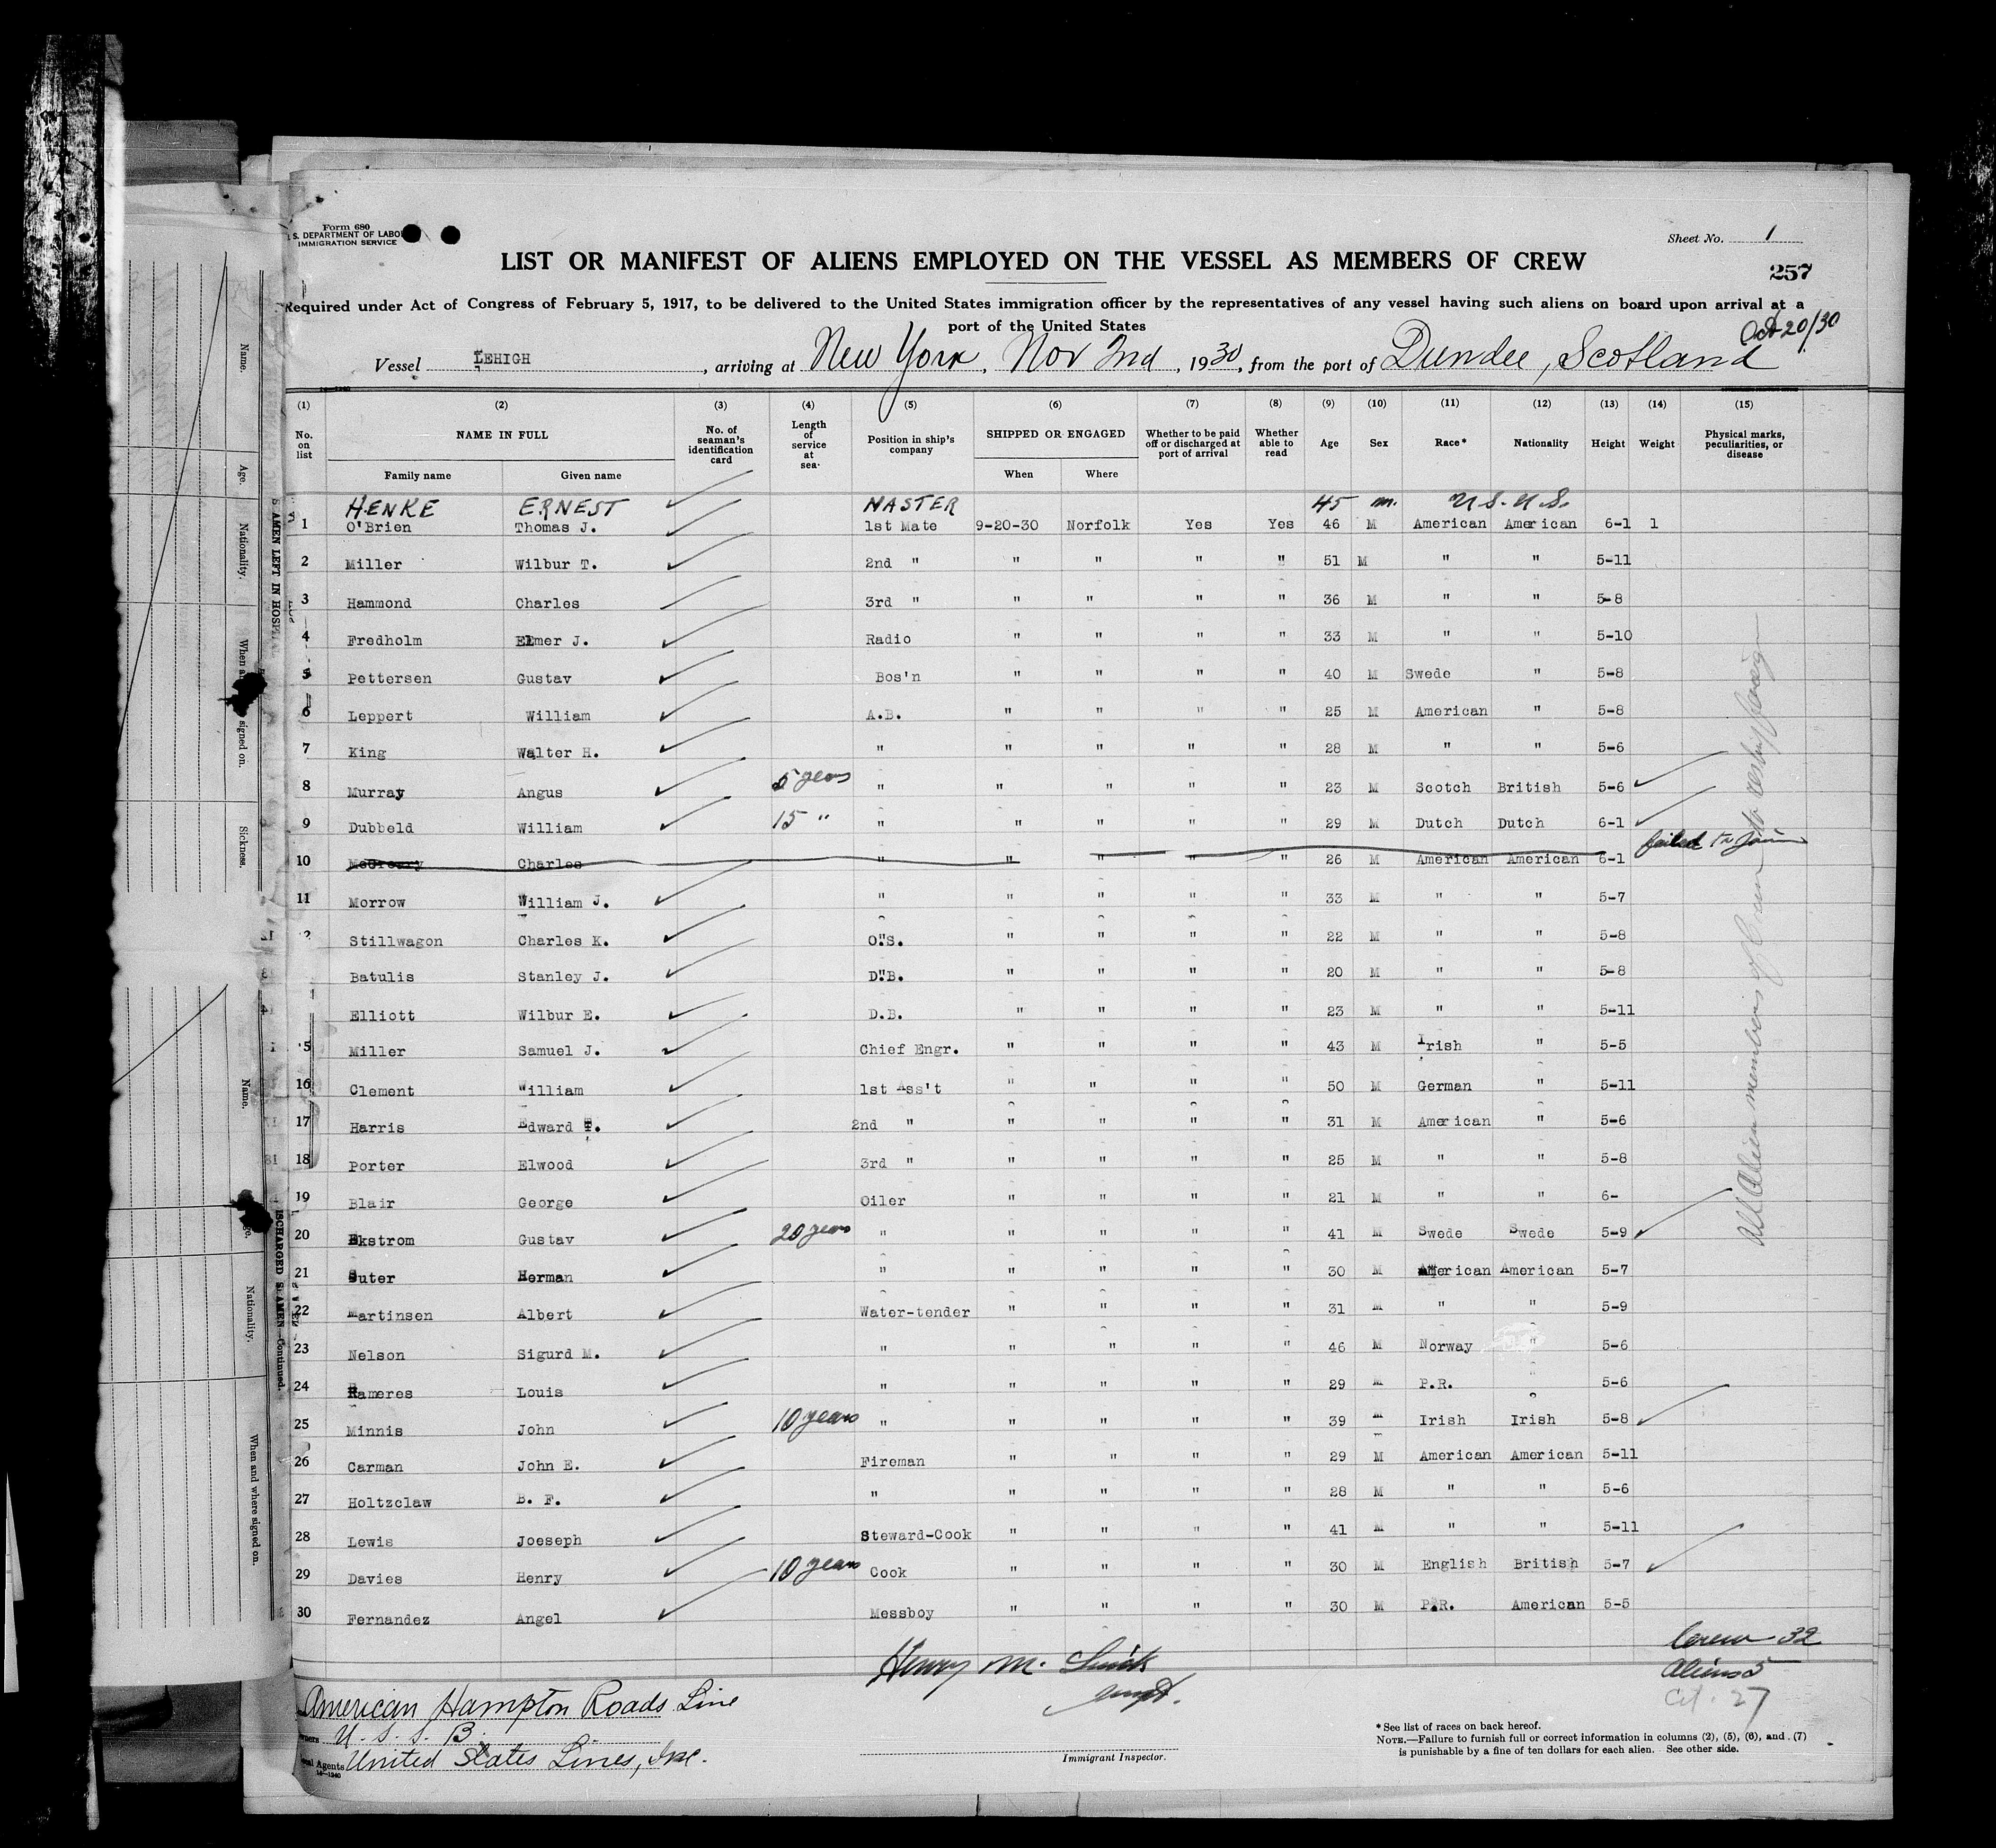 Form 680
S. DEPARTMENT OF LABOR
IMMIGRATION SERVICE
Sheet No. 1
LIST OR MANIFEST OF ALIENS EMPLOYED ON THE VESSEL AS MEMBERS OF CREW
257
Required under Act of Congress of February 5, 1917, to be delivered to the United States immigration officer by the representatives of any vessel having such aliens on board upon arrival at a
port of the United States
Oct 20/30
Vessel LEHIGH, arriving at New York, Nov 2nd, 1930, from the port of Dundee, Scotland
(1) (2) (3) (4) (5) (6) (7) (8) (9) (10) (11) (12) (13) (14) (15)
No. on list NAME IN FULL Family name Given name No. of seaman's identification card Length of service at sea Position in ship's company SHIPPED OR ENGAGED When Where Whether to be paid off or discharged at port of arrival Whether able to read Age Sex Race* Nationality Height Weight Physical marks, peculiarities, or disease
HENKE ERNEST MASTER 45 m. U.S. U.S.
1 O'Brien Thomas J. 1st Mate 9-20-30 Norfolk Yes Yes 46 M American American 6-1 1
2 Miller Wilbur T. 2nd " " " " " 51 M " " 5-11
3 Hammond Charles 3rd " " " " " 36 M " " 5-8
4 Fredholm Elmer J. Radio " " " " 33 M " " 5-10
5 Pettersen Gustav Bos'n " " " " 40 M Swede " 5-8
6 Leppert William A.B. " " " " 25 M American " 5-8
7 King Walter H. " " " " " 28 M " " 5-6
8 Murray Angus 5 years " " " " " 23 M Scotch British 5-6
9 Dubbeld William 15 " " " " " " 29 M Dutch Dutch 6-1
10 McCreary Charles " " " " " 26 M American American 6-1 failed to join
11 Morrow William J. " " " " " 33 M " " 5-7
2 Stillwagon Charles K. O.S. " " " " 22 M " " 5-8
Batulis Stanley J. D.B. " " " " 20 M " " 5-8
Elliott Wilbur E. D.B. " " " " 23 M " " 5-11
5 Miller Samuel J. Chief Engr. " " " " 43 M Irish " 5-5
16 Clement William 1st Ass't " " " " 50 M German " 5-11
17 Harris Edward T. 2nd " " " " " 31 M American " 5-6
18 Porter Elwood 3rd " " " " " 25 M " " 5-8
19 Blair George Oiler " " " " 21 M " " 6-
20 Ekstrom Gustav 20 years " " " " " 41 M Swede Swede 5-9
21 Suter Herman " " " " " 30 M American American 5-7
22 Martinsen Albert Water-tender " " " " 31 M " " 5-9
23 Nelson Sigurd M. " " " " " 46 M Norway " 5-6
24 Rameres Louis " " " " " 29 M P.R. " 5-6
25 Minnis John 10 years " " " " " 39 M Irish Irish 5-8
26 Carman John E. Fireman " " " " 29 M American American 5-11
27 Holtzclaw B. F. " " " " " 28 M " " 5-6
28 Lewis Joeseph Steward-Cook " " " " 41 M " " 5-11
29 Davies Henry 10 years Cook " " " " 30 M English British 5-7
30 Fernandez Angel Messboy " " " " 30 M P.R. American 5-5
All Alien members of Crew
Crew 32
Aliens 5
Cit. 27
Henry M.
American Hampton Roads Line
Owners U. S. S. B.
Local Agents United States Lines, Inc.
Immigrant Inspector.
*See list of races on back hereof.
NOTE.—Failure to furnish full or correct information in columns (2), (5), (6), and (7)
is punishable by a fine of ten dollars for each alien. See other side.
Name.
Age.
Nationality.
signed on.
Sickness.
SEAMEN LEFT IN HOSPITAL
Name.
Nationality.
When and where signed on.
DISCHARGED SEAMEN—Continued.